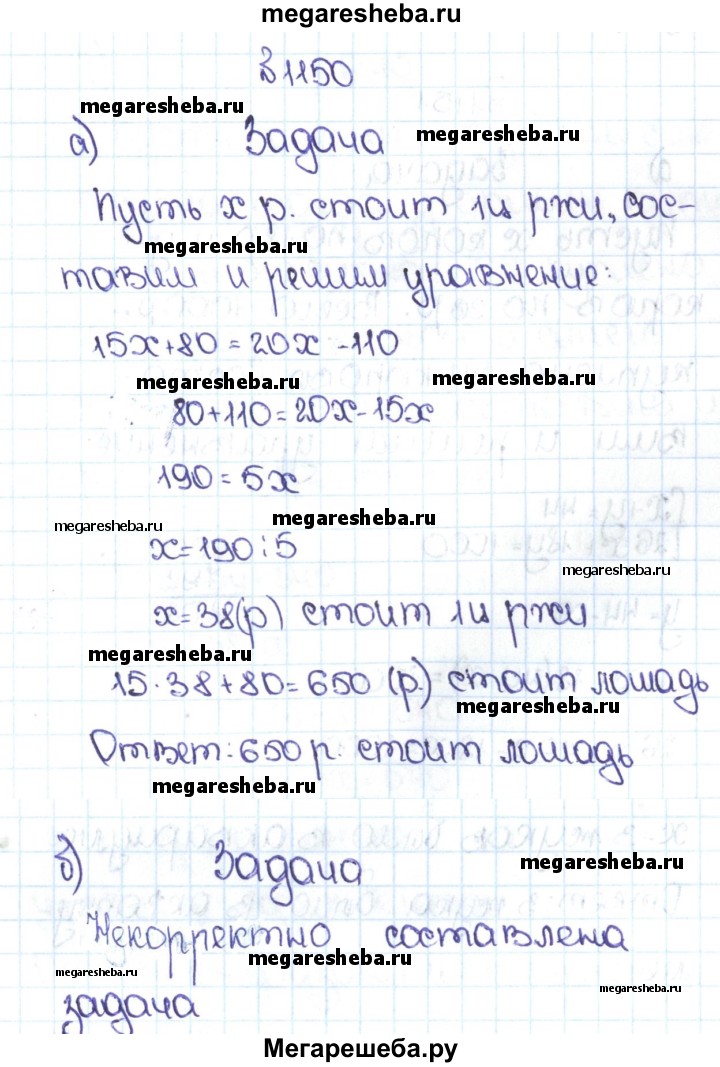 megaresheba.ru
№1150
megaresheba.ru
а) Задача megaresheba.ru
Пусть x р. стоит 1ц ржи, сос-
megaresheba.ru
тавим и решим уравнение:
15x+80=20x-110
megaresheba.ru megaresheba.ru
80+110=20x-15x
190=5x
megaresheba.ru megaresheba.ru
x=190:5
megaresheba.ru
x=38(р) стоит 1ц ржи
megaresheba.ru
15·38+80=650 (р.) стоит лошадь
megaresheba.ru
Ответ: 650 р. стоит лошадь
megaresheba.ru
б) Задача megaresheba.ru
Некорректно составлена
megaresheba.ru megaresheba.ru
megaresheba.ru
задача
Мегарешеба.ру